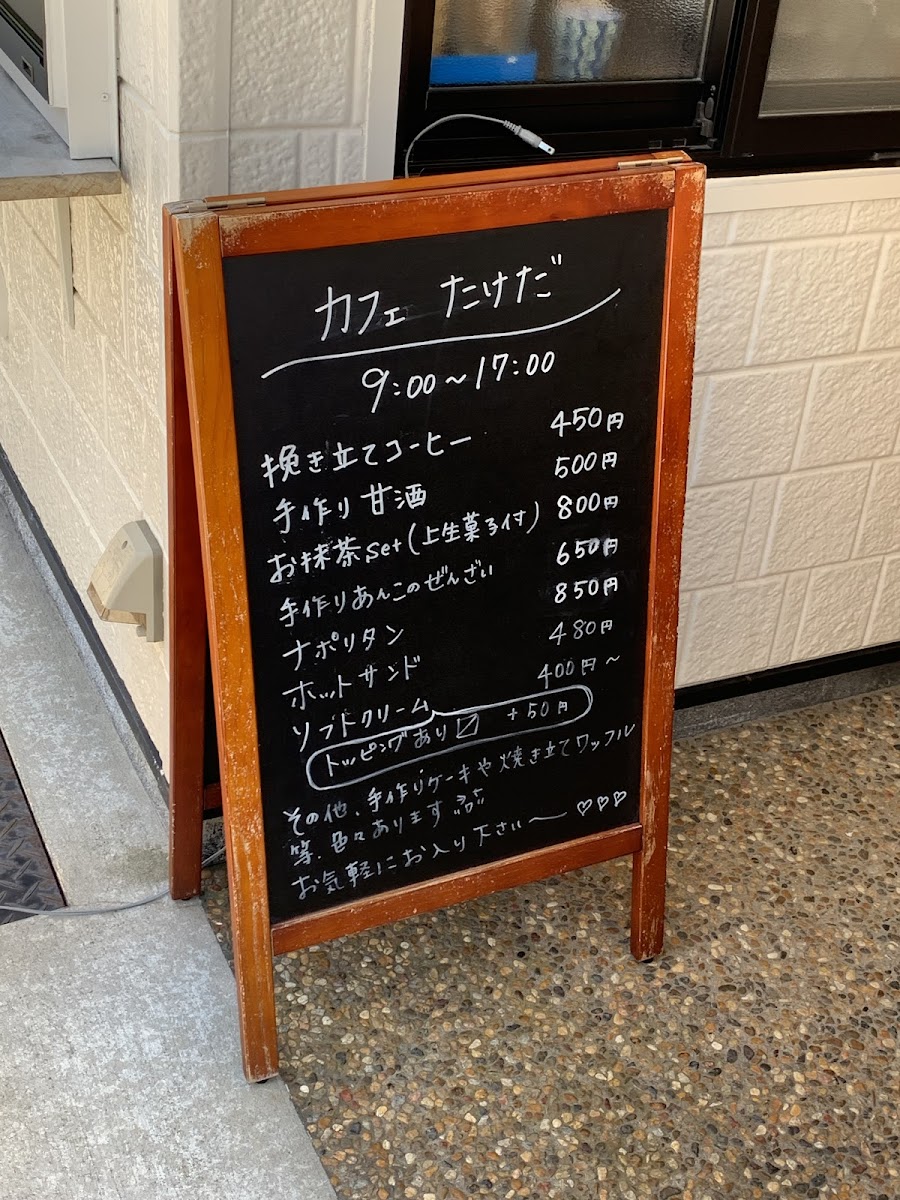 カフェ たけだ
9:00～17:00
挽き立てコーヒー 450円
手作り甘酒 500円
お抹茶set(上生菓子付) 800円
手作りあんこのぜんざい 650円
ナポリタン 850円
ホットサンド 480円
ソフトクリーム 400円～
トッピングあり +50円
その他、手作りケーキや焼き立てワッフル
等、色々あります
お気軽にお入り下さい～♡♡♡